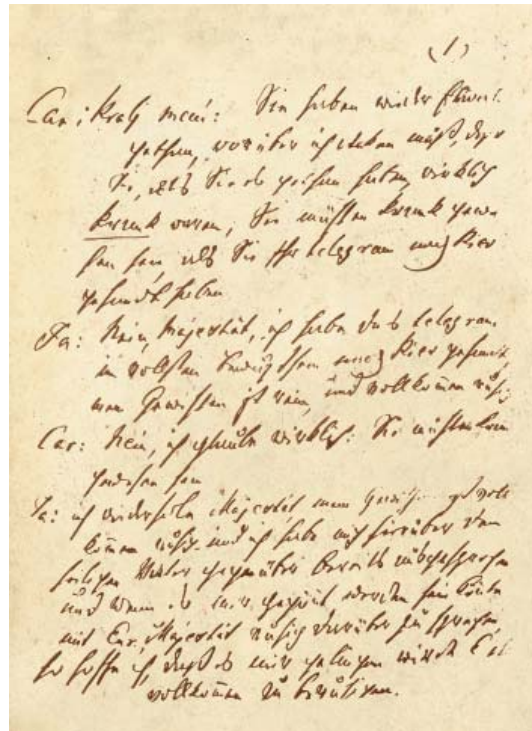 (1)
Car i Kralj meni: Sie haben wieder
gethan, worüber ich reden muß, daß
Sie, als Sie es gethan haben, wirklich
krank waren; Sie müssen krank gewe-
sen sein, als Sie Ihr telegram nach Kiev
gesandt haben
Ja: Nein, Majestät, ich habe das telegram
im vollsten Bewußtsein nach Kiev gesandt,
mein Gewissen ist rein, und vollkommen ruhig
Car: Nein, ich glaube wirklich: Sie müssen krank
gewesen sein
Ja: ich wiederhole Majestät, mein Gewissen voll-
kommen ruhig und ich habe mich hierüber dem
heiligen Vater gegenüber bereits ausgesprochen
und wenn es mir gegönnt werden sein könnte
mit Eur. Majestät ruhig darüber zu sprechen,
so hoffe ich, daß es mir gelingen würde E.
vollkommen zu